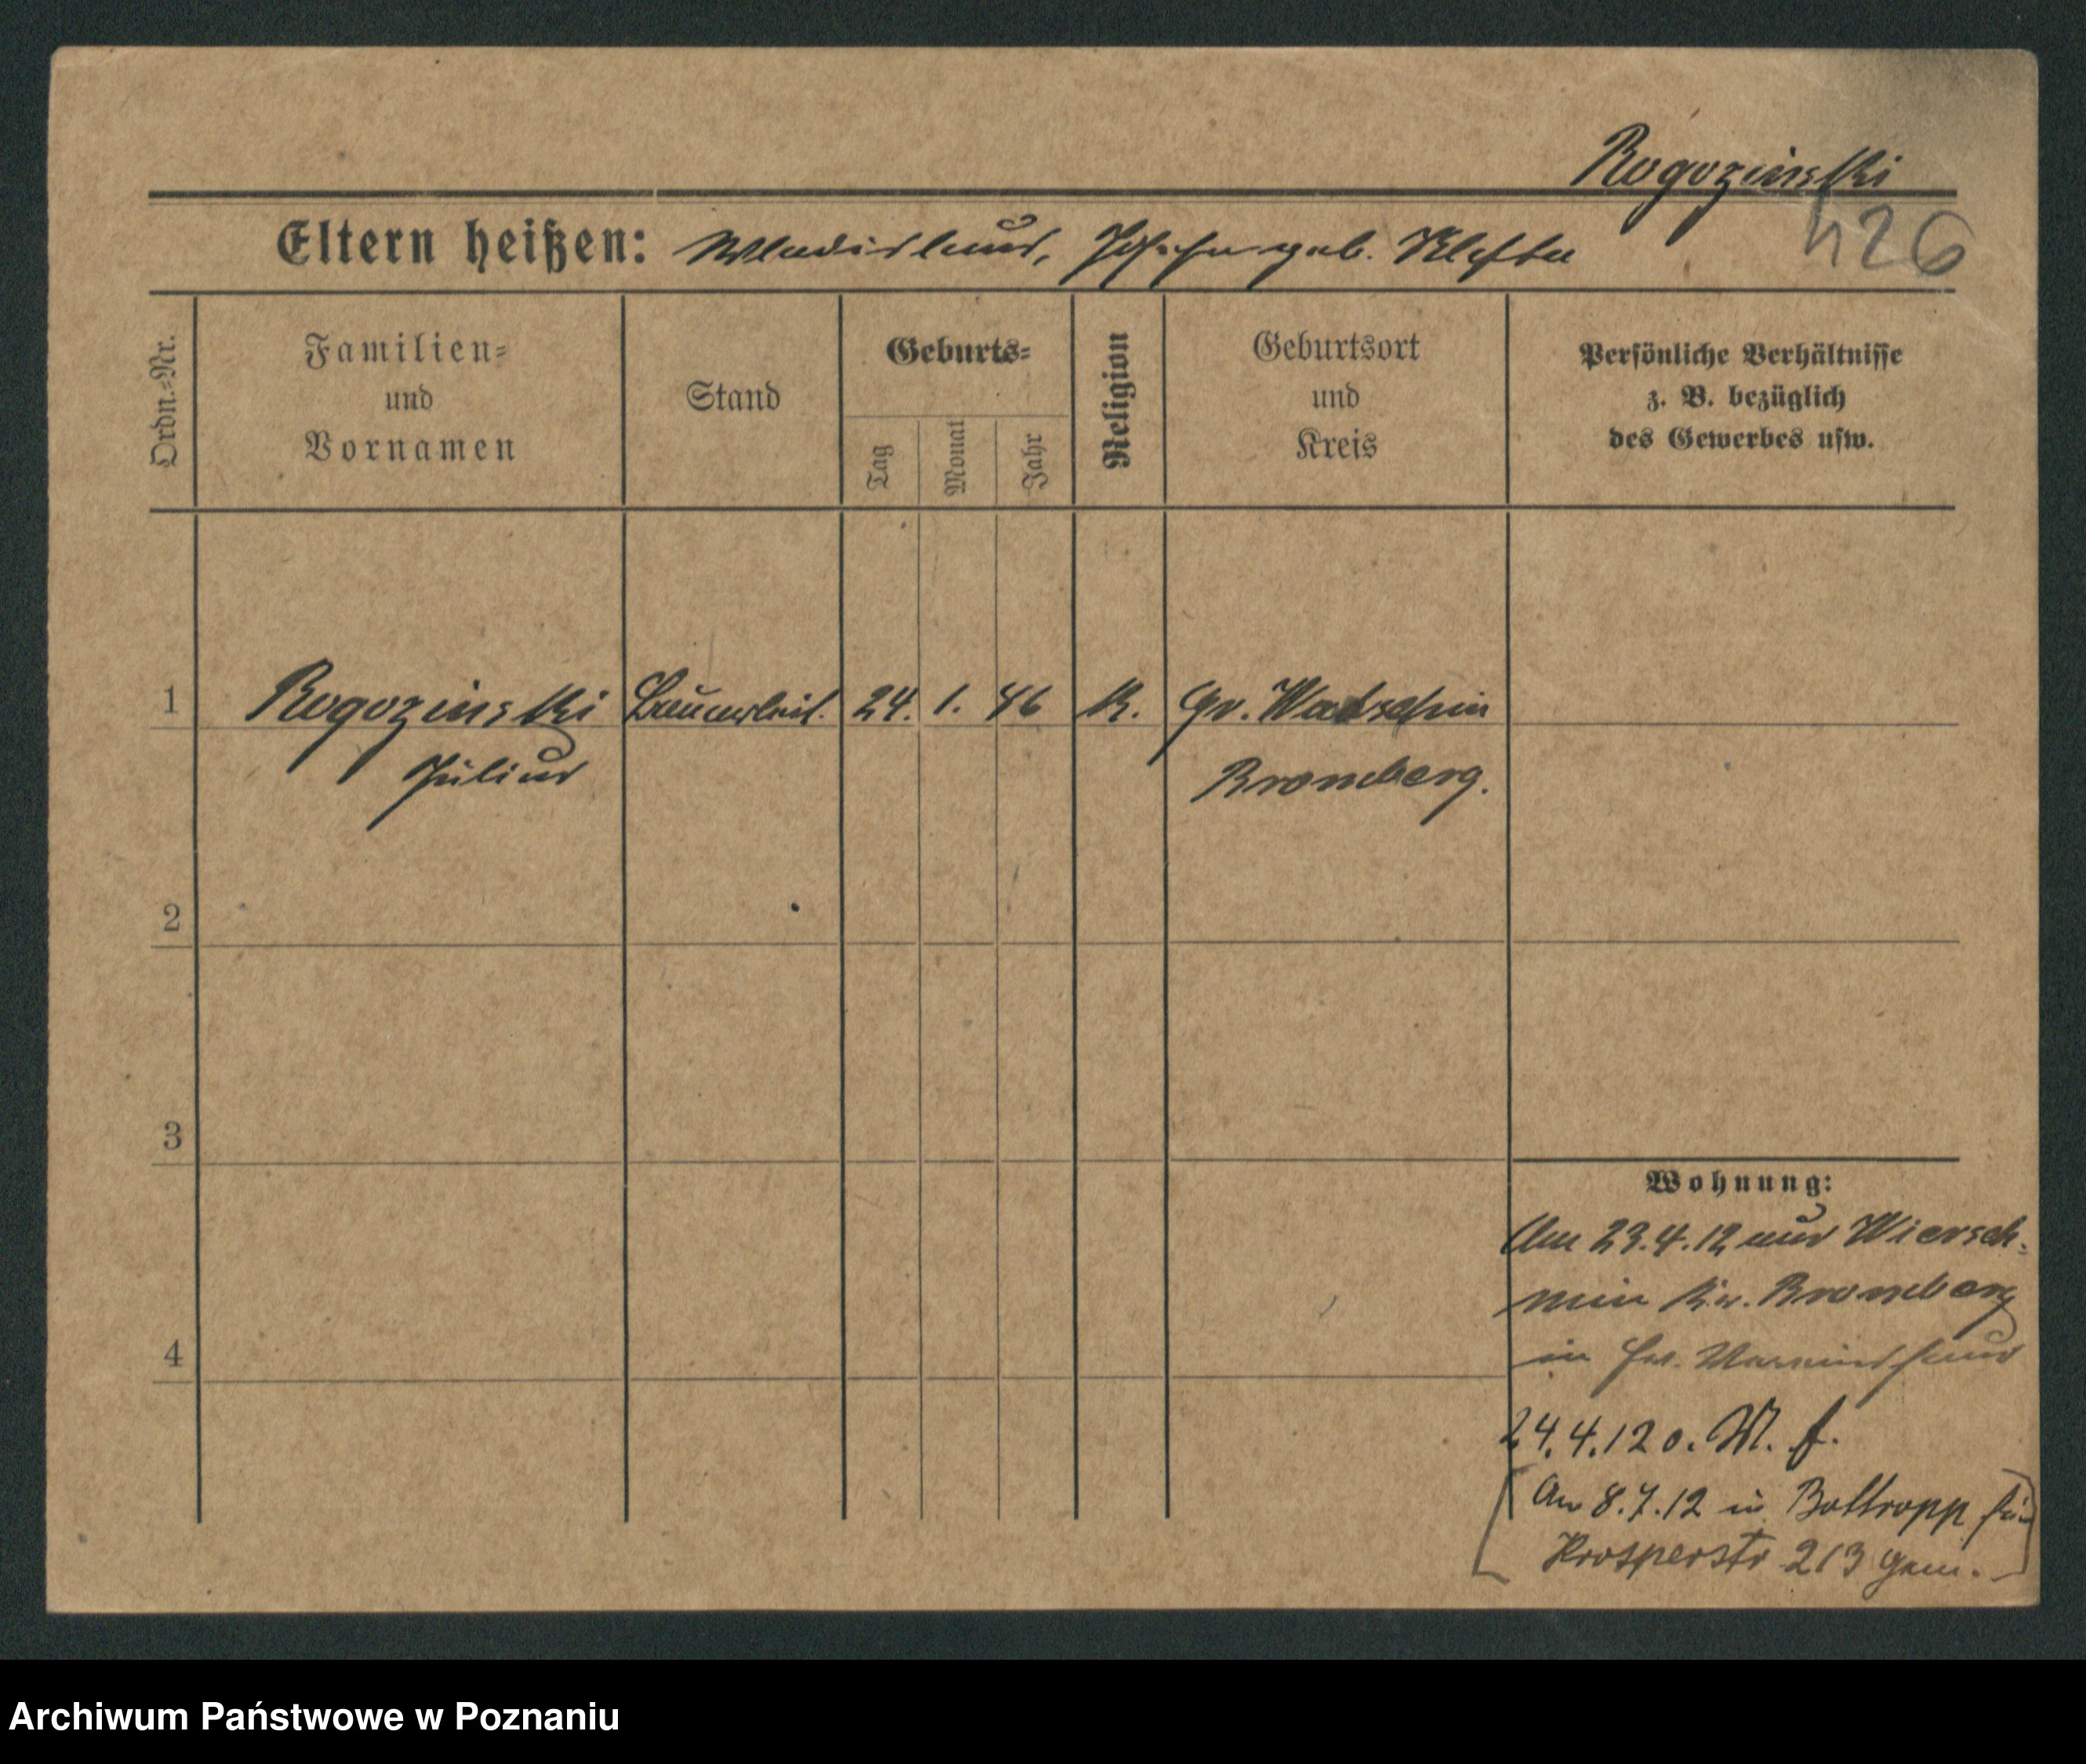 Rogozinski
426
Eltern heißen: Wladislaus, Josefa geb. Klafta
Ordn.=Nr.
Familien=
und
Vornamen
Stand
Geburts=
Tag
Monat
Jahr
Religion
Geburtsort
und
Kreis
Persönliche Verhältnisse
z. B. bezüglich
des Gewerbes usw.
1 Rogozinski Bauarbeit. 24. 1. 46 K. Gr. Watschin
Julius Bromberg.
2
3
4
Wohnung:
Am 23.4.12 aus Wiersch-
min Kr. Bromberg
in
24.4.12 o. W. f.
Am 8.7.12 in Bottropp für
Prosperstr 213 gem.
Archiwum Państwowe w Poznaniu